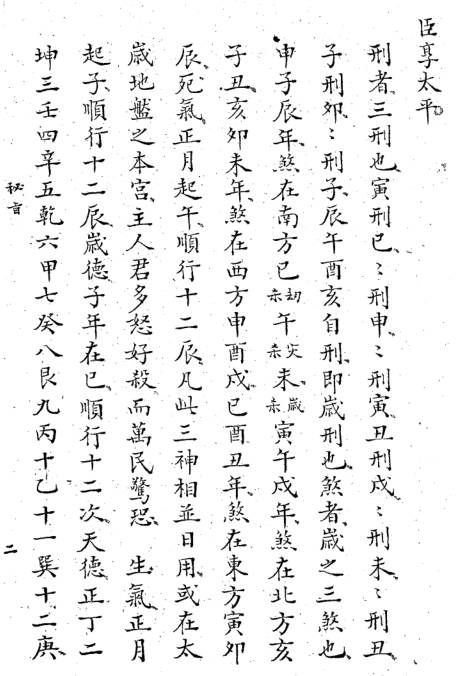 臣享太平
刑者三刑也寅刑巳〻刑申〻刑寅丑刑戌〻刑未〻刑丑
子刑卯〻刑子辰午酉亥自刑即歲刑也煞者歲之三煞也
申子辰年煞在南方巳劫煞午灾煞未歲煞寅午戌年煞在北方亥
子丑亥卯未年煞在西方申酉戌巳酉丑年煞在東方寅卯
辰死氣正月起午順行十二辰凡此三神相並日用或在太
歲地盤之本宮主人君多怒好殺而萬民驚恐 生氣正月
起子順行十二辰歲德子年在巳順行十二次天德正丁二
坤三壬四辛五乾六甲七癸八艮九丙十乙十一巽十二庚
秘旨
二